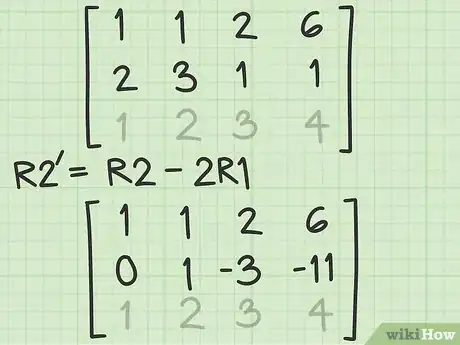 1 1 2 6
2 3 1 1
1 2 3 4
R2' = R2 - 2R1
1 1 2 6
0 1 -3 -11
1 2 3 4
wikiHow